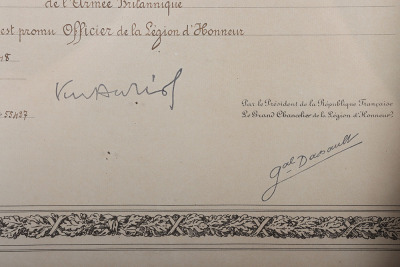 de l'Armée Britannique
est promu Officier de la Légion d'Honneur
8
55427
Par le Président de la République Française
Le Grand Chancelier de la Légion d'Honneur:
Gal. Dassault